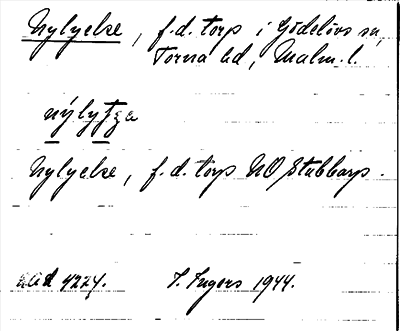 Nylycke, f.d. torp i Gödelövs sn,
Torna hd, Malm. l.
Nylycke, f.d. torp NO Stabbarp.
4224. I. Ingers 1944.